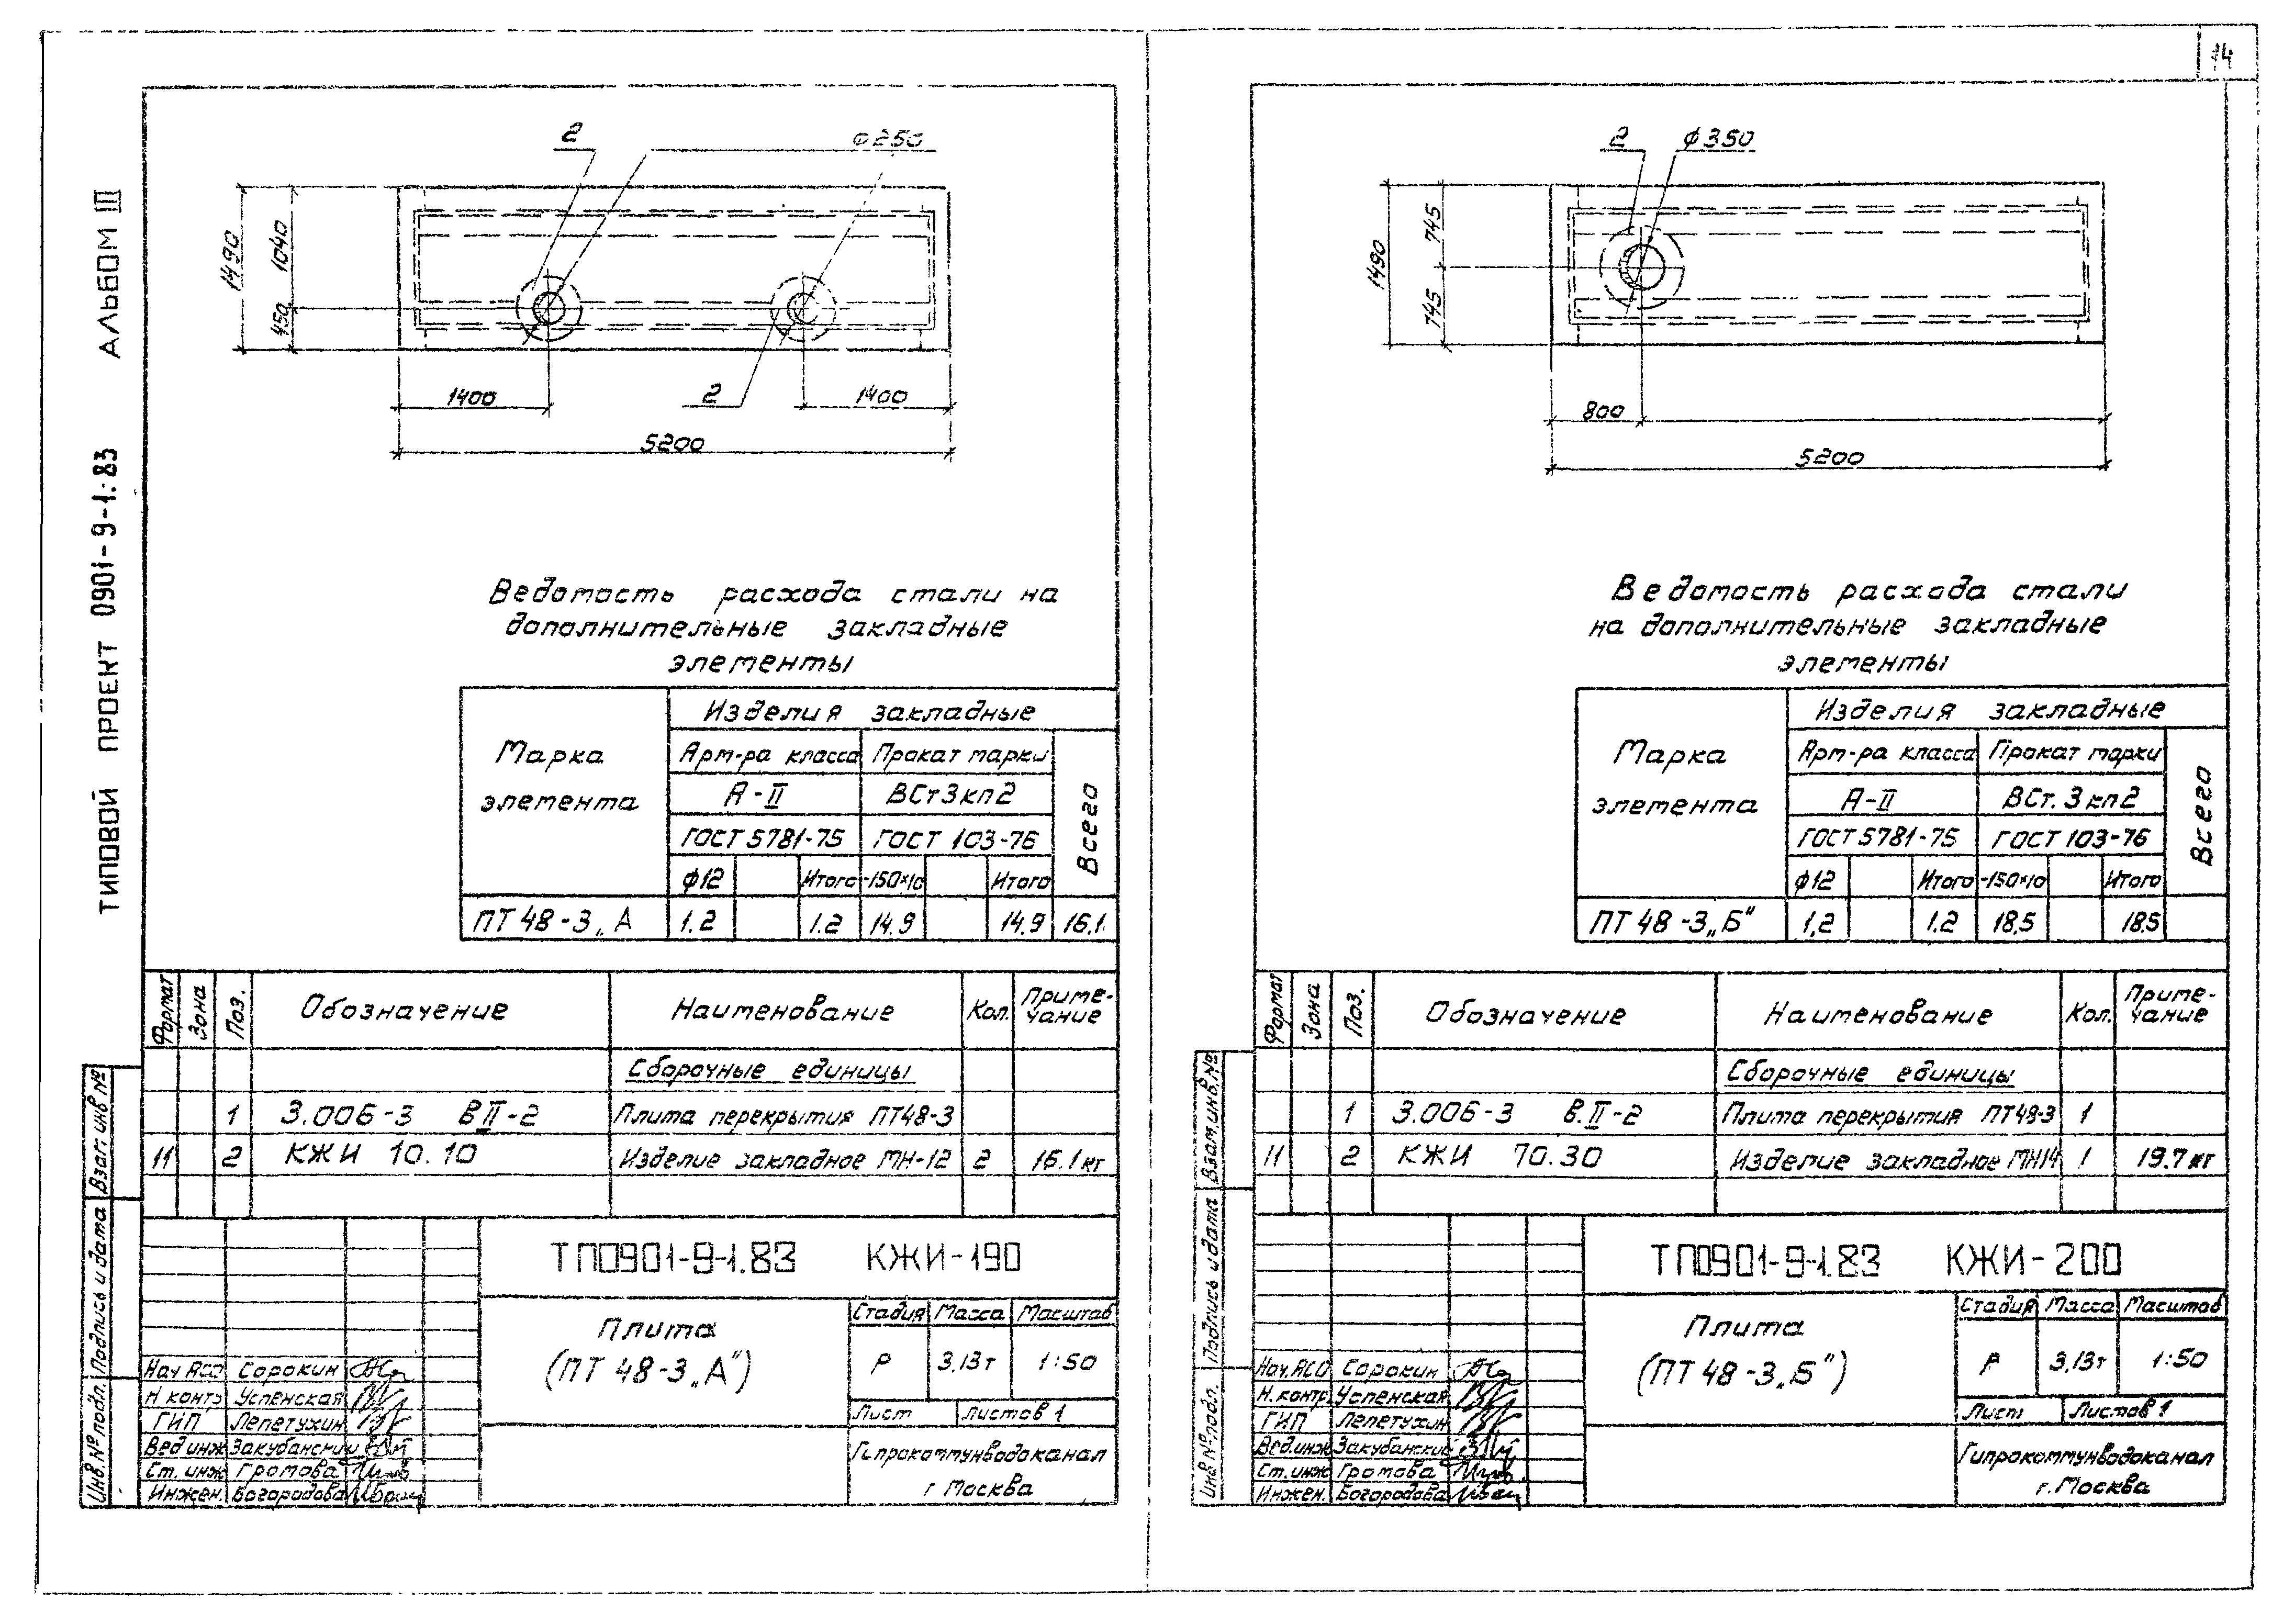 14
ТИПОВОЙ ПРОЕКТ 0901-9-1.83 АЛЬБОМ III
2
ф250
1490
1040
450
1400
2
1400
5200
Ведомость расхода стали на
дополнительные закладные
элементы
Марка
элемента
Изделия закладные
Арм-ра класса
Прокат марки
Всего
А-II
ВСт3кп2
ГОСТ 5781-75
ГОСТ 103-76
ф12
Итого
-150×10
Итого
ПТ 48-3„А
1.2
1.2
14.9
14.9
16.1
Формат
Зона
Поз.
Обозначение
Наименование
Кол.
Приме-
чание
Сборочные единицы
1 3.006-3 ВII-2 Плита перекрытия ПТ48-3
11 2 КЖИ 10.10 Изделие закладное МН-12 2 16.1кг
Взам. инв №
Подпись и дата
Инв.№ подл.
ТП0901-9-1.83 КЖИ-190
Плита
(ПТ 48-3„А")
Стадия Масса Масштаб
Р 3,13т 1:50
Лист Листов 1
Гипрокоммунводоканал
г Москва
Нач АСО Сорокин
Н контр Успенская
ГИП Лепетухин
Вед инж Закубански
Ст. инж Громова
Инжен. Богородова
2
ф350
1490
745
745
800
5200
Ведомость расхода стали
на дополнительные закладные
элементы
Марка
элемента
Изделия закладные
Арм-ра класса
Прокат марки
Всего
А-II
ВСт.3кп2
ГОСТ 5781-75
ГОСТ 103-76
ф12
Итого
-150×10
Итого
ПТ 48-3„Б"
1,2
1.2
18,5
18.5
Формат
Зона
Поз.
Обозначение
Наименование
Кол.
Приме-
чание
Сборочные единицы
1 3.006-3 В.II-2 Плита перекрытия ПТ48-3 1
11 2 КЖИ 70.30 Изделие закладное МН14 1 19.7кг
Взам.инв.№
Подпись и дата
Инв № подл.
ТП0901-9-1.83 КЖИ-200
Плита
(ПТ 48-3„Б")
Стадия Масса Масштаб
Р 3,13т 1:50
Лист Листов 1
Гипрокоммунводоканал
г. Москва
Нач. АСО Сорокин
Н. контр Успенская
ГИП Лепетухин
Вед.инж Закубански
Ст. инж Громова
Инжен. Богородова